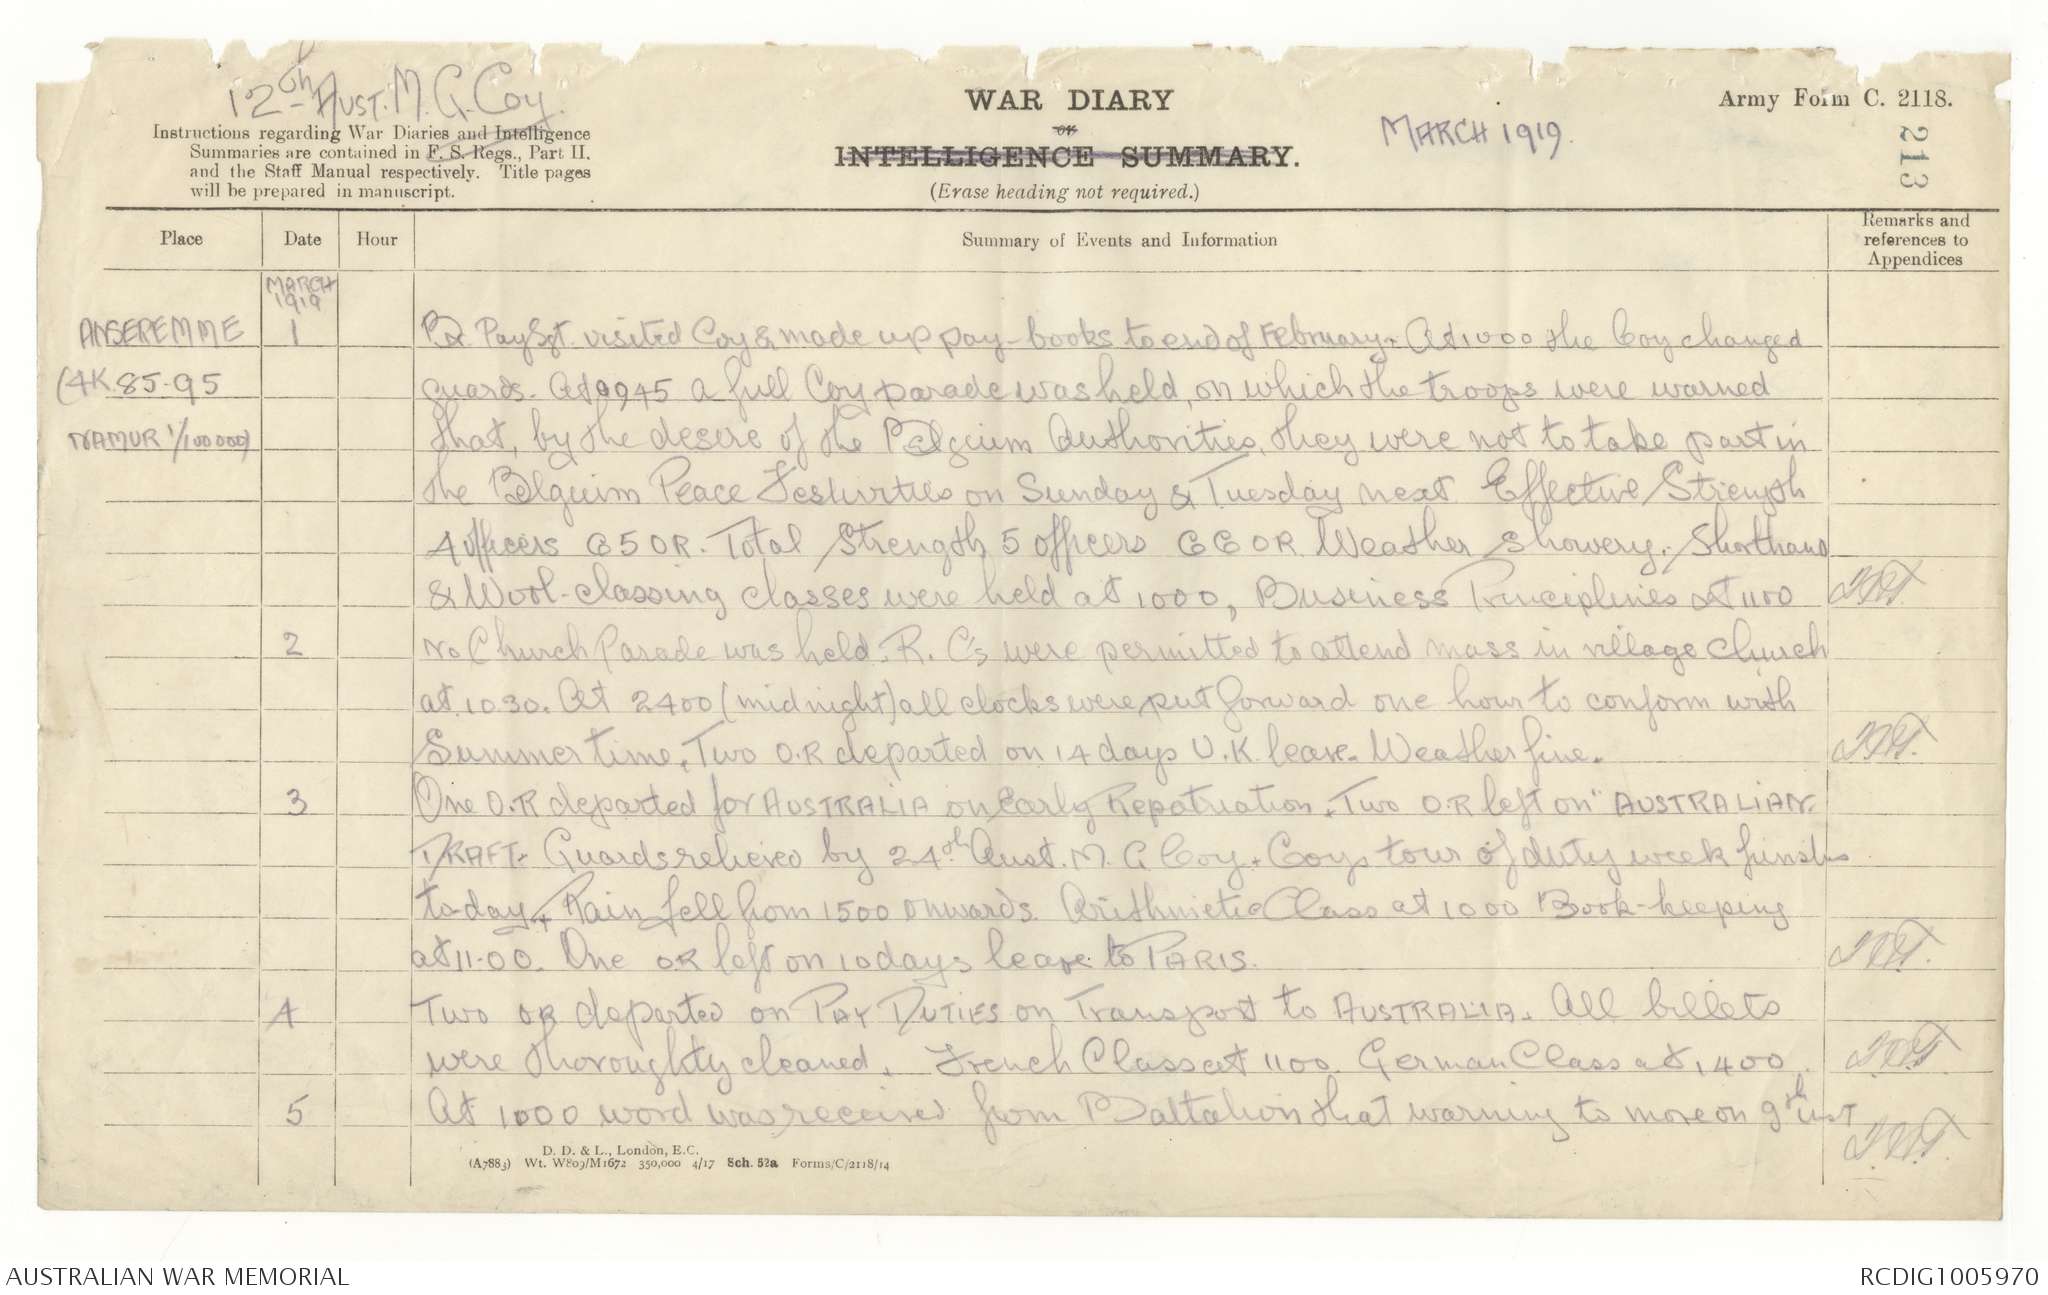 12th Aust. M. G. Coy.
WAR DIARY
OR
INTELLIGENCE SUMMARY.
(Erase heading not required.)
MARCH 1919.
Army Form C. 2118.
213
Instructions regarding War Diaries and Intelligence
Summaries are contained in F. S. Regs., Part II.
and the Staff Manual respectively. Title pages
will be prepared in manuscript.
Place Date Hour Summary of Events and Information Remarks and
references to
Appendices
MARCH
1919
ANSEREMME 1 Pay Sgt. visited Coy & made up pay-books to end of February. At 1000 the Coy changed
(4K.85.95 guards. At 0945 a full Coy parade was held, on which the troops were warned
NAMUR 1/100000) that, by the desire of the Belguim Authorities, they were not to take part in
the Belguim Peace Festivities on Sunday & Tuesday next. Effective Strength
4 officers 65 OR. Total Strength 5 officers 66 OR. Weather showery. Shorthand
& Wool-classing classes were held at 1000, Business Principles at 1100
2 No Church Parade was held. R. C's were permitted to attend mass in village church
at 1030. At 2400 (midnight) all clocks were put forward one hour to conform with
Summer time. Two O.R departed on 14 days U.K. leave. Weather fine.
3 One O.R departed for AUSTRALIA on Early Repatriation. Two O.R left on "AUSTRALIAN
DRAFT. Guards relieved by 24th Aust. M. G Coy. Coys tour of duty week finishes
to-day. Rain fell from 1500 onwards. Arithmetic Class at 1000 Book-keeping
at 11.00. One OR left on 10 days leave to PARIS.
4 Two OR departed on PAY DUTIES on Transport to AUSTRALIA. All billets
were thoroughty cleaned. French Class at 1100. German Class at 1400.
5 At 1000 word was received from Battalion that warning to move on 9th inst
D. D. & L., London, E.C.
(A7883) Wt. W809/M1672 350,000 4/17 Sch. 52a Forms/C/2118/14
AUSTRALIAN WAR MEMORIAL
RCDIG1005970